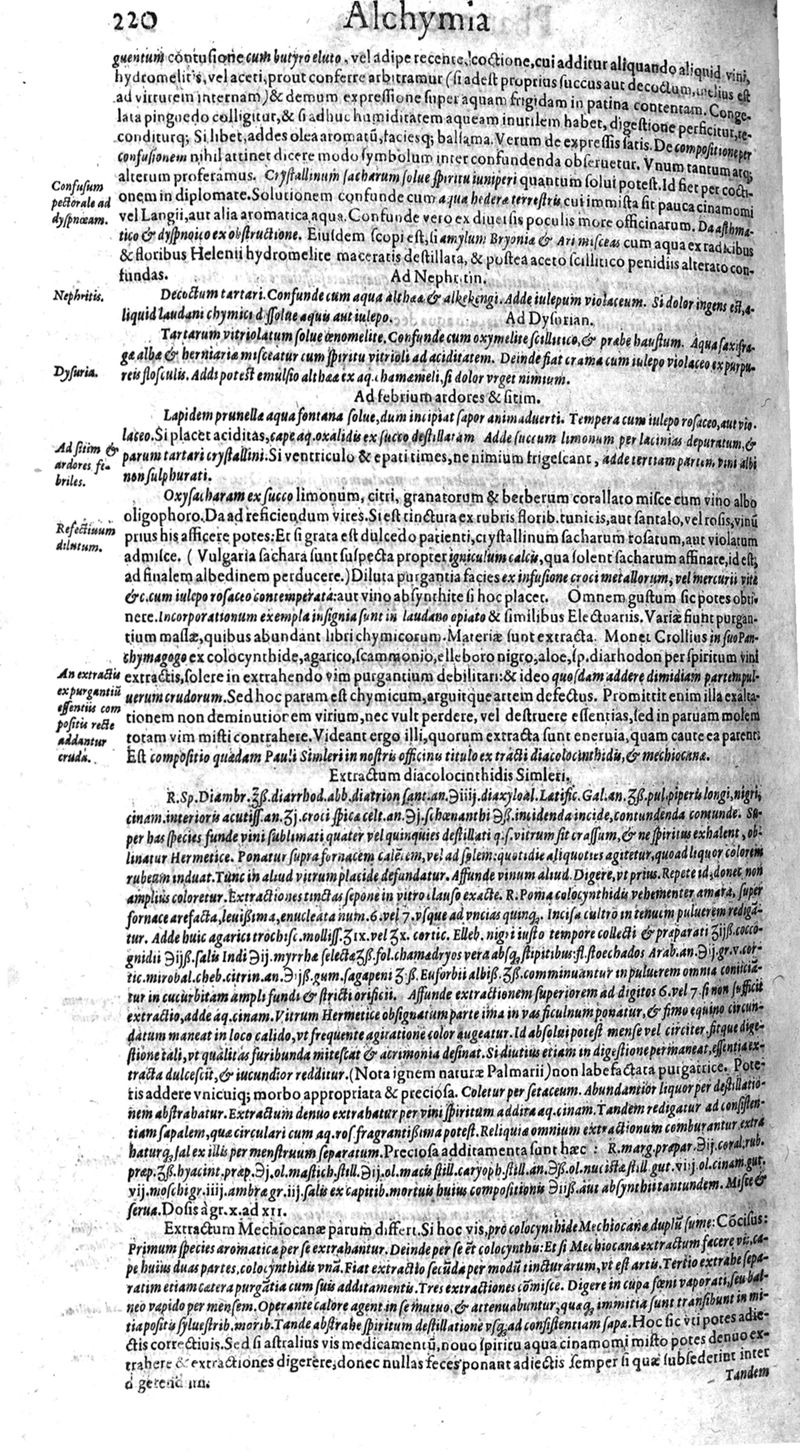 220 Alchymia
guentum contusione cum butyro eluto, vel adipe recente, coctione, cui additur aliquando aliquid vini,
hydromelitis, vel aceti, prout conferre arbitramur (si adest proprius succus aut decoctum, melius est
ad virtutem internam) & demum expressione super aquam frigidam in patina contentam. Conge-
lata pinguedo colligitur, & si adhuc humiditatem aqueam inutilem habet, digestione perficitur, re-
conditurq; Si libet, addes olea aromatū, faciesq; balsama. Verum de expressis satis. De compositione per
confusionem nihil attinet dicere modo symbolum inter confundenda obseruetur. Vnum tantum atq;
alterum proferamus. Crystallinum sacharum solue spiritu iuniperi quantum solui potest. Id fiet per cocti-
Confusum
pectorale ad
dyspnœam.
onem in diplomate. Solutionem confunde cum aqua hederæ terrestris, cui immista sit pauca cinamomi
vel Langii, aut alia aromatica, aqua. Confunde vero ex diuersis poculis more officinarum. Da asthma-
tico & dyspnoico ex obstructione. Eiusdem scopi est, si amylum Bryoniæ & Ari misceas cum aqua ex radicibus
& floribus Helenii hydromelite maceratis destillata, & postea aceto scillitico penidiis alterato con-
fundas. Ad Nephritin.
Nephritis.
Decoctum tartari. Confunde cum aqua althææ & alkekengi. Adde iulepum violaceum. Si dolor ingens est, a-
liquid laudani chymici dissolue aquis aut iulepo. Ad Dysurian.
Tartarum vitriolatum solue œnomelite. Confunde cum oxymelite scillitico, & præbe haustum. Aqua saxifra-
gæ albæ & herniariæ misceatur cum spiritu vitrioli ad aciditatem. Deinde fiat crama cum iulepo violaceo ex purpu-
Dysuria.
reis flosculis. Addi potest emulsio althææ ex aq. chamæmeli, si dolor vrget nimium.
Ad febrium ardores & sitim.
Lapidem prunellæ aqua fontana solue, dum incipiat sapor animaduerti. Tempera cum iulepo rosaceo, aut vio-
Ad sitim &
ardores fe-
briles.
laceo. Si placet aciditas, cape aq. oxalidis ex succo destillatam Adde succum limonum per lacinias depuratum, &
parum tartari crystallini. Si ventriculo & epati times, ne nimium frigescant, adde tertiam partem vini albi
non sulphurati.
Oxysacharam ex succo limonum, citri, granatorum & berberum corallato misce cum vino albo
Refectiuum
dilutum.
oligophoro. Da ad reficiendum vires. Si est tinctura ex rubris florib. tunicis, aut santalo, vel rosis, vinū
prius his afficere potes: Et si grata est dulcedo patienti, crystallinum sacharum rosatum, aut violatum
admisce. (Vulgaria sachara sunt suspecta propter igniculum calcis, qua solent sacharum affinare, id est,
ad finalem albedinem perducere.) Diluta purgantia facies ex infusione croci metallorum, vel mercurii vitæ
&c. cum iulepo rosaceo contemperata: aut vino absynthite si hoc placet. Omnem gustum sic potes obti-
nere. Incorporationum exempla insignia sunt in laudano opiato & similibus Electuariis. Variæ fiunt purgan-
tium massæ, quibus abundant libri chymicorum. Materiæ sunt extracta. Monet Crollius in suo Pan-
chymagogo ex colocynthide, agarico, scammonio, elleboro nigro, aloe, sp. diarhodon per spiritum vini
An extractis
ex purgantiū
essentiis com
positis recte
addantur
cruda.
extractis, solere in extrahendo vim purgantium debilitari: & ideo quosdam addere dimidiam partem pul-
uerum crudorum. Sed hoc parum est chymicum, arguitque artem defectus. Promittit enim illa exalta-
tionem non deminutionem virium, nec vult perdere, vel destruere essentias, sed in paruam molem
totam vim misti contrahere. Videant ergo illi, quorum extracta sunt eneruia, quam caute ea parent.
Est compositio quædam Pauli Simleri in nostris officinis titulo extracti diacolocinthidis, & mechiocanæ.
Extractum diacolocinthidis Simleri.
R. Sp. Diambr. ʒß. diarrhod. abb. diatrion sant. an. ℈iiij. diaxyloal. Latific. Gal. an. ʒß. pul. piperis longi, nigri,
cinam. interioris acutiss. an. ʒj. croci spicæ celt. an. ℈j. schœnanthi ℈ß. incidenda incide, contundenda contunde. Su-
per has species funde vini sublimati quater vel quinquies destillati q. s. vitrum sit crassum, & ne spiritus exhalent, ob-
linatur Hermetice. Ponatur supra fornacem calentem, vel ad solem: quotidie aliquoties agitetur, quoad liquor colorem
rubeum induat. Tunc in aliud vitrum placide defundatur. Affunde vinum aliud. Digere, vt prius. Repete id, donec non
amplius coloretur. Extractiones tinctas sepone in vitro clauso exacte. R. Poma colocynthidis vehementer amara, super
fornace arefacta, leuissima, enucleata num. 6. vel 7. vsque ad vncias quinq. Incisa cultro in tenuem puluerem redigā-
tur. Adde huic agarici trochisc. molliss. ʒix. vel ʒx. cortic. Elleb. nigri iusto tempore collecti & præparati ʒijß. cocco-
gnidii ℈ijß. salis Indi ℈ij. myrrhæ selectæ ʒß. fol. chamædryos vera absq; stipitibus: fl. stoechados Arab. an. ℈ij. gr. v. cor-
tic. mirobal. cheb. citrin. an. ℈ijß. gum. sagapeni ʒß. Euforbii albiß. ʒß. comminuantur in puluerem omnia coniiciā-
tur in cucurbitam ampli fundi & stricti orificii. Affunde extractionem superiorem ad digitos 6. vel 7. si non sufficit
extractio, adde aq. cinam. Vitrum Hermetice obsignatum parte ima in vas ficulnum ponatur, & fimo equino circun-
datum maneat in loco calido, vt frequente agitatione color augeatur. Id absolui potest mense vel circiter, sitque dige-
stione tali, vt qualitas furibunda mitescat & acrimonia desinat. Si diutius etiam in digestione permaneat, essentia ex-
tracta dulcescit, & iucundior redditur. (Nota ignem naturæ Palmarii) non labefactata purgatrice. Pote-
tis addere vnicuiq; morbo appropriata & preciosa. Coletur per setaceum. Abundantior liquor per destillatio-
nem abstrabatur. Extractum denuo extrabatur per vini spiritum addita aq. cinam. Tandem redigatur ad consisten-
tiam sapalem, qua circulari cum aq. ros fragrantissima potest. Reliquia omnium extractionum comburantur, extra
haturq, sal ex illis per menstruum separatum. Preciosa additamenta sunt hæc: R. marg. præpar. ℈ij. coral. rub.
præp. ʒß. hyacint. præp. ℈j. ol. mastich. still. ℈ij. ol. macis still. caryoph. still. an. ℈ß. ol. nucistæ still. gut. viij. ol. cinam. gut.
vij. moschi gr. iiij. ambræ gr. iij. salis ex capitib. mortuis huius compositionis ℈iiß. aut absynthii tantundem. Misce &
serua. Dosis à gr. x. ad xii.
Extractum Mechiocanæ parum differt. Si hoc vis, pro colocynthide Mechiocanæ duplū sume: Cōcisus:
Primum species aromaticæ per se extrahantur. Deinde per se et colocynthis: Et si Mechiocanæ extractum facere vis, ca-
pe huius duas partes, colocynthidis vnā. Fiat extractio secūda per modū tincturarum, vt est artis. Tertio extrahe sepa-
ratim etiam cætera purgātia cum suis additamentis. Tres extractiones cōmisce. Digere in cupa fœni vaporati, seu bal-
neo vapido per mensem. Operante calore agent in se mutuo, & attenuabuntur, quæq, immitia sunt transibunt in mi-
tia positis syluestrib. morib. Tandē abstrahe spiritum destillatione vsq, ad consistentiam sapæ. Hoc sic vti potes adie-
ctis correctiuis. Sed si astralius vis medicamentū, nouo spiritu aqua cinamomi misto potes denuo ex-
trahere & extractiones digerere, donec nullas feces ponant adiectis semper si quæ subsederint inter
digerendum.
Tandem